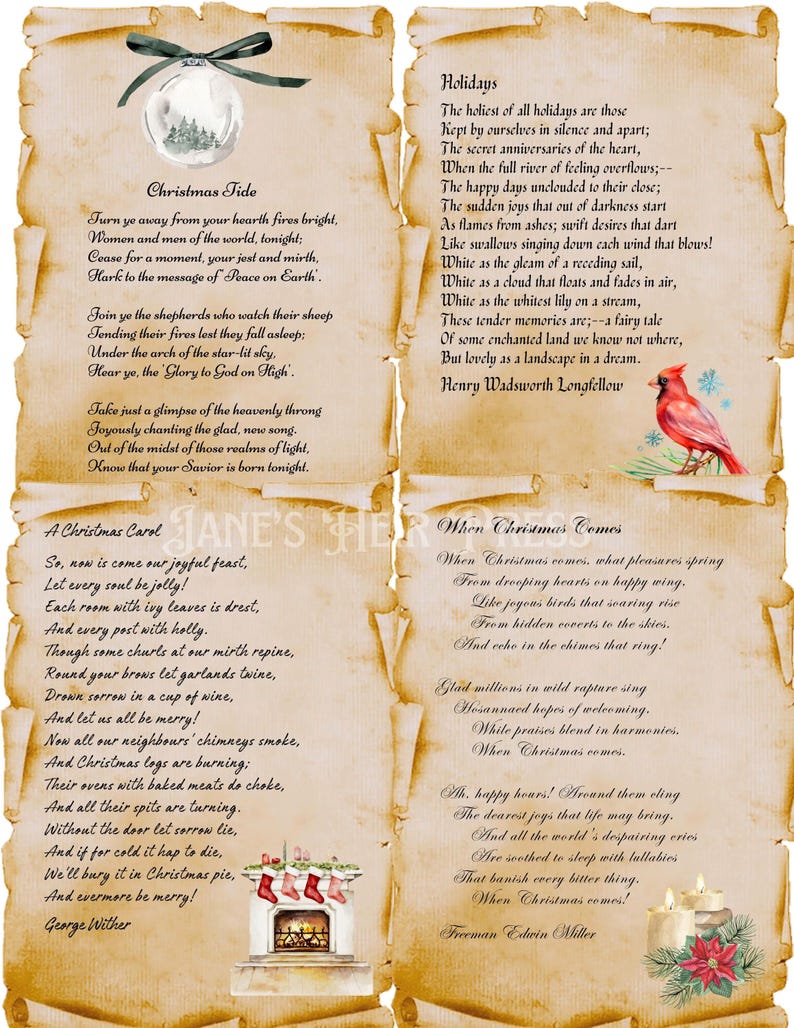 Christmas Tide
Turn ye away from your hearth fires bright,
Women and men of the world, tonight;
Cease for a moment, your jest and mirth,
Hark to the message of "Peace on Earth'.
Join ye the shepherds who watch their sheep
Tending their fires lest they fall asleep;
Under the arch of the star-lit sky,
Hear ye, the 'Glory to God on High'.
Take just a glimpse of the heavenly throng
Joyously chanting the glad, new song.
Out of the midst of those realms of light,
Know that your Savior is born tonight.
Holidays
The holiest of all holidays are those
Kept by ourselves in silence and apart;
The secret anniversaries of the heart,
When the full river of feeling overflows;--
The happy days unclouded to their close;
The sudden joys that out of darkness start
As flames from ashes; swift desires that dart
Like swallows singing down each wind that blows!
White as the gleam of a receding sail,
White as a cloud that floats and fades in air,
White as the whitest lily on a stream,
These tender memories are;--a fairy tale
Of some enchanted land we know not where,
But lovely as a landscape in a dream.
Henry Wadsworth Longfellow
JANE'S HEIR PRESS
A Christmas Carol
So, now is come our joyful feast,
Let every soul be jolly!
Each room with ivy leaves is drest,
And every post with holly.
Though some churls at our mirth repine,
Round your brows let garlands twine,
Drown sorrow in a cup of wine,
And let us all be merry!
Now all our neighbours' chimneys smoke,
And Christmas logs are burning;
Their ovens with baked meats do choke,
And all their spits are turning.
Without the door let sorrow lie,
And if for cold it hap to die,
We'll bury it in Christmas pie,
And evermore be merry!
George Wither
When Christmas Comes
When Christmas comes, what pleasures spring
From drooping hearts on happy wing,
Like joyous birds that soaring rise
From hidden coverts to the skies,
And echo in the chimes that ring!
Glad millions in wild rapture sing
Hosannaed hopes of welcoming,
While praises blend in harmonies,
When Christmas comes.
Ah, happy hours! Around them cling
The dearest joys that life may bring,
And all the world's despairing cries
Are soothed to sleep with lullabies
That banish every bitter thing,
When Christmas comes!
Freeman Edwin Miller